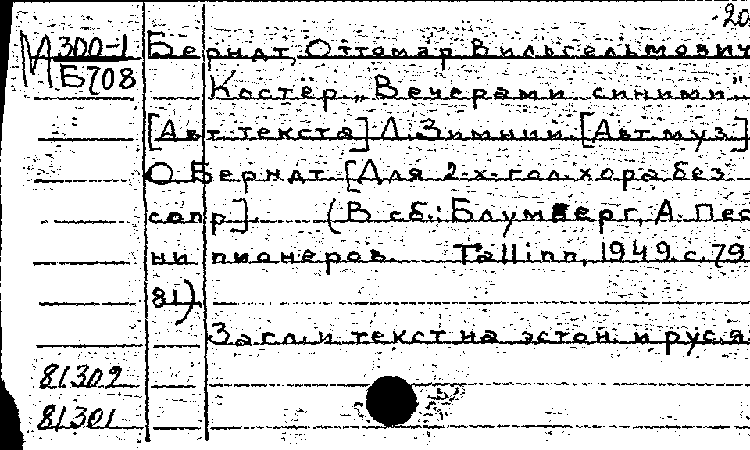 20
М 300-1 Берндт, Оттомар Вильгельмович
Б708
Костёр „Вечерами синими"
[Авт. текста] Л. Зимний. [Авт. муз.]
О. Берндт. [Для 2-х-гол. хора без
сопр]. (В сб.: Блумберг, А. Пес
ни пионеров. Tallinn, 1949. с. 79
81)
Загл. и текст на эстон. и рус. я
81302
81301